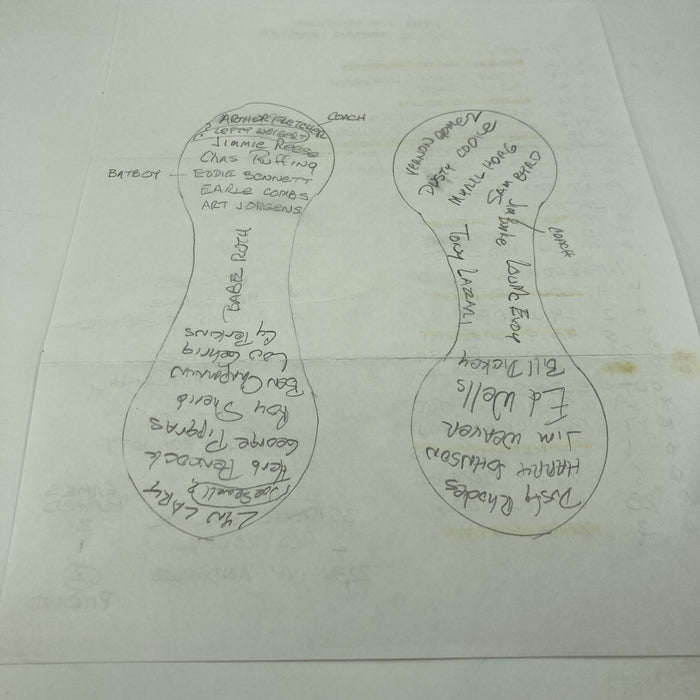 ARTHUR FLETCHER
COACH
? LEFTY WEIGERT
Jimmie Reese
Chas Ruffing
BATBOY
EDDIE BENNETT
EARLE COMBS
ART JORGENS
BABE RUTH
Cy Perkins
Lou Gehrig
Ben Chapman
Roy Sherid
George Pipgras
Herb Pennock
Joe Sewell ?
LYN LARY
VERNON GOMEZ
DUSTY COOKE
MYRIL HOAG
SAM BYRD
Jim Burke
COACH
Lou McEvoy
TONY LAZZARI
Bill Dickey
Ed Wells
JIM WEAVER
HARRY JOHNSON
Dusty Rhodes